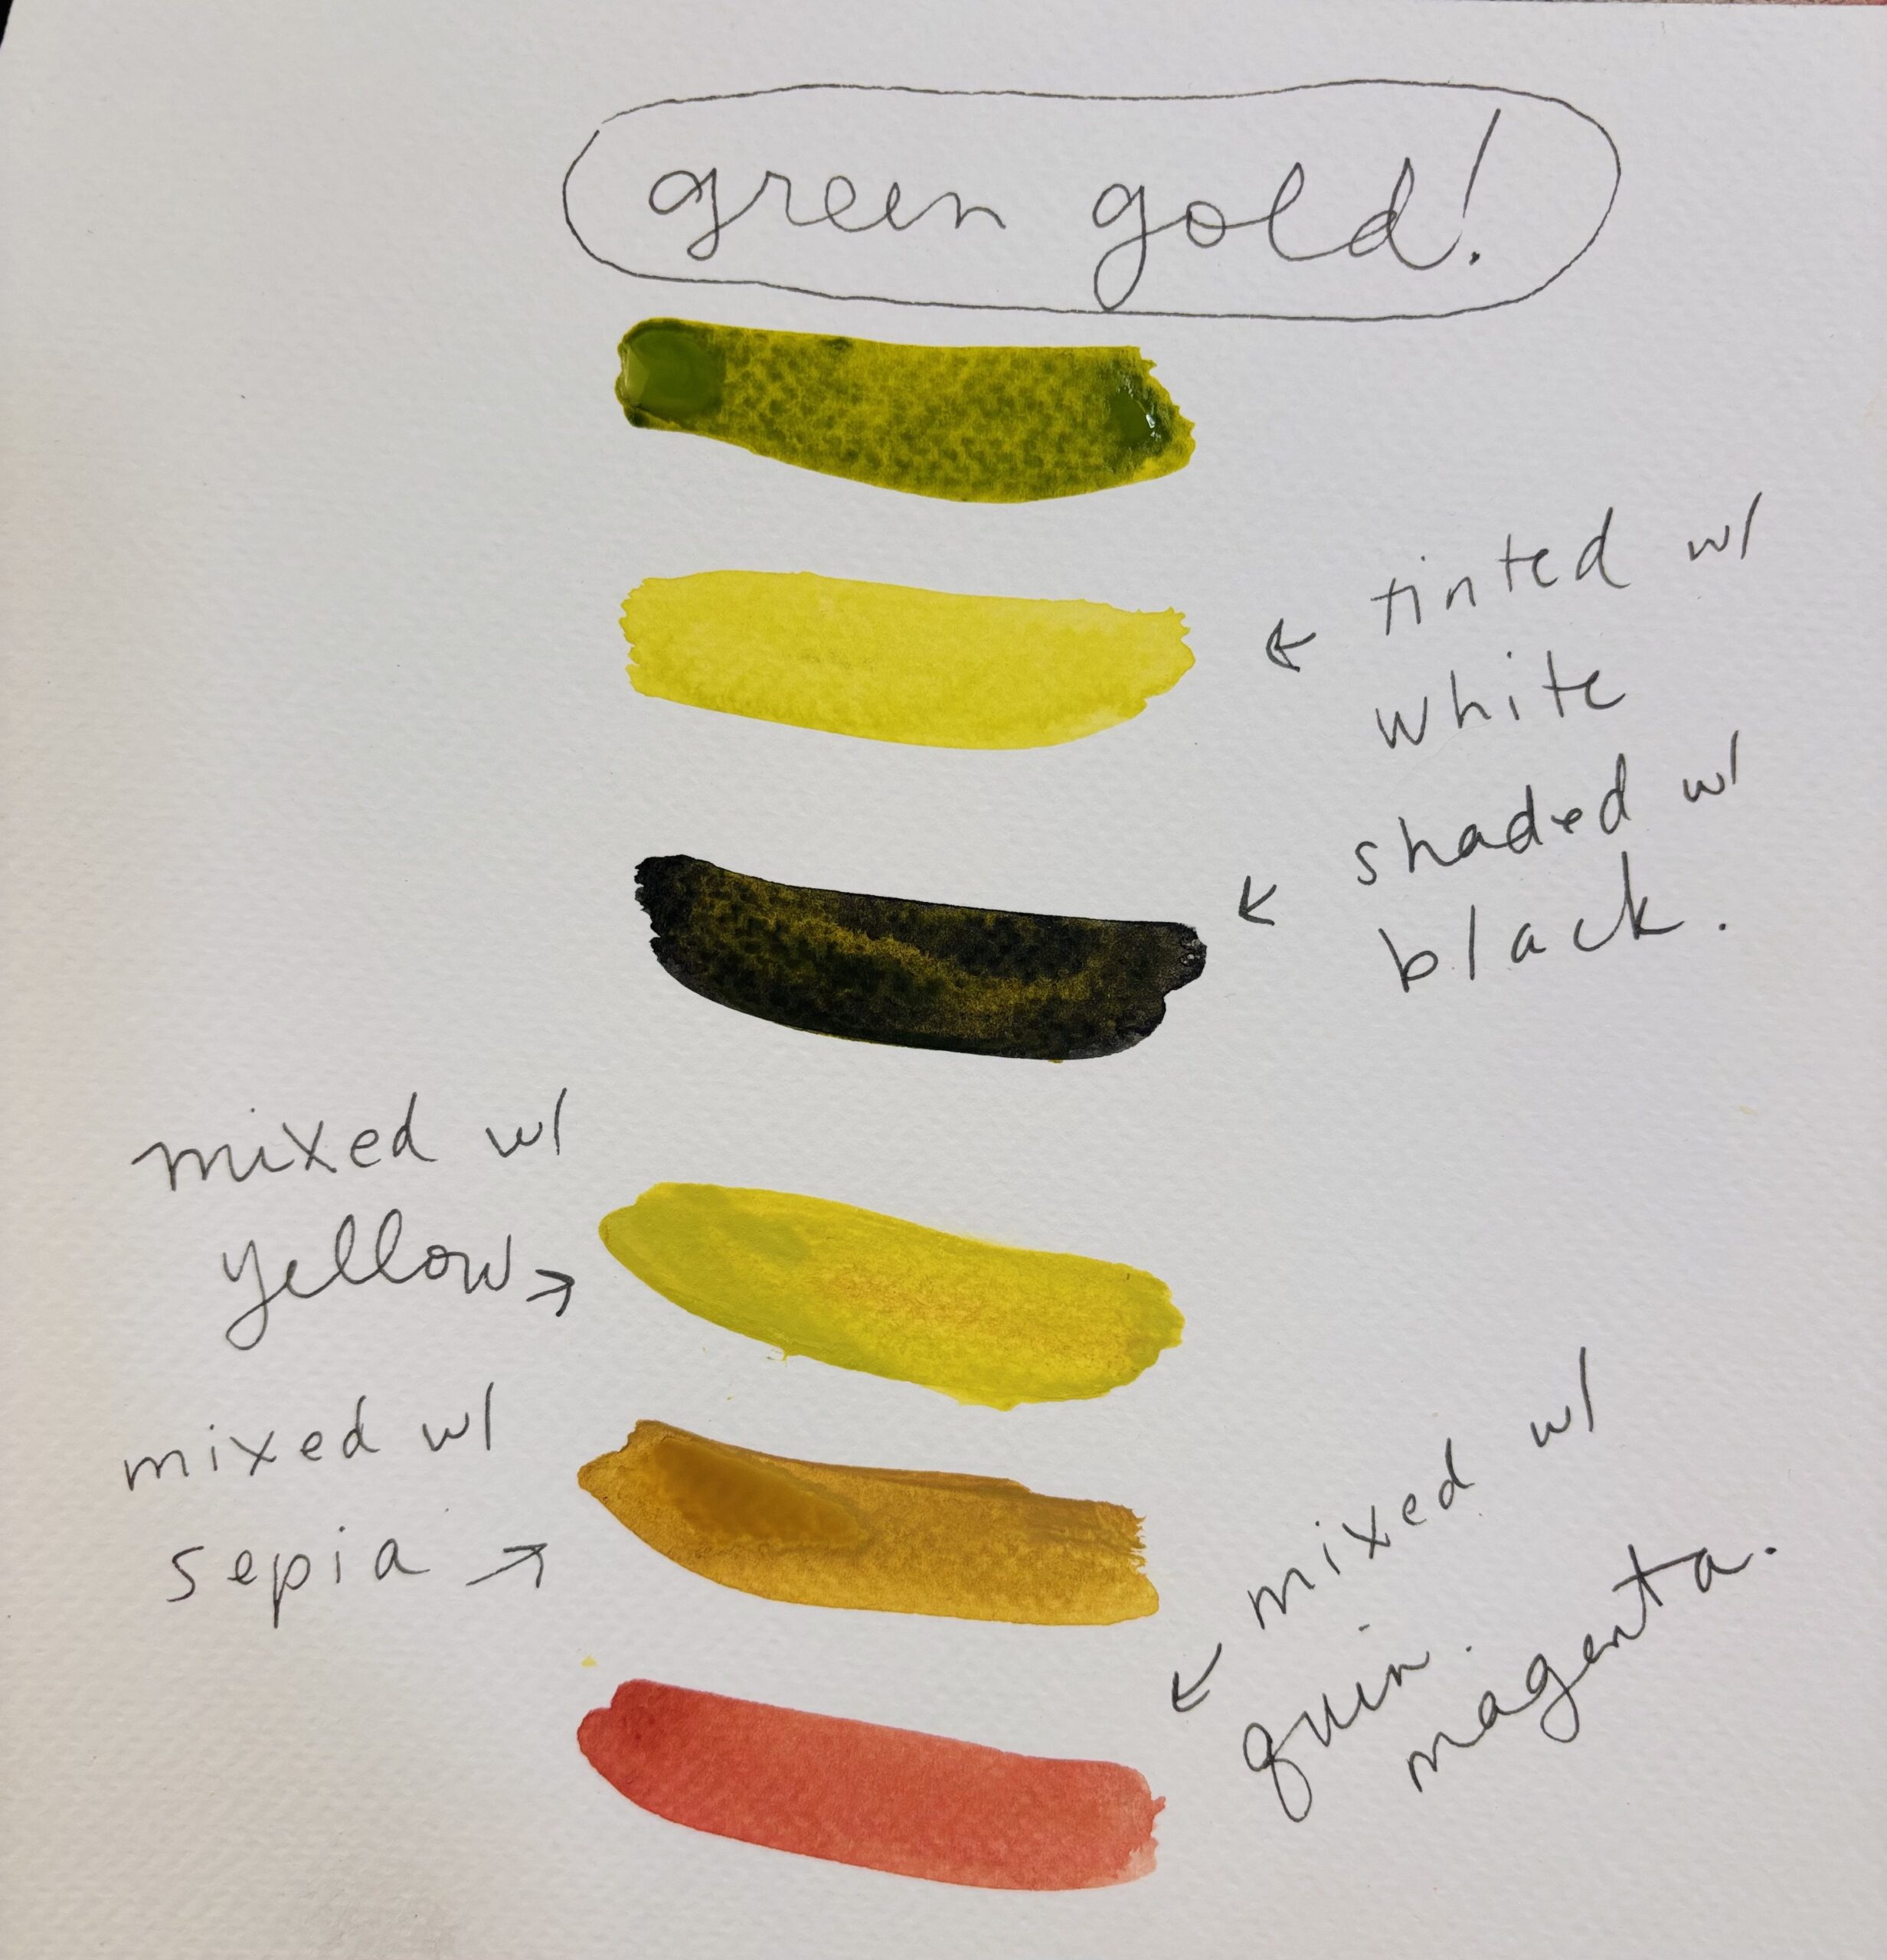 green gold!
tinted w/
white
shaded w/
black.
mixed w/
yellow →
mixed w/
sepia →
mixed w/
quin.
magenta.